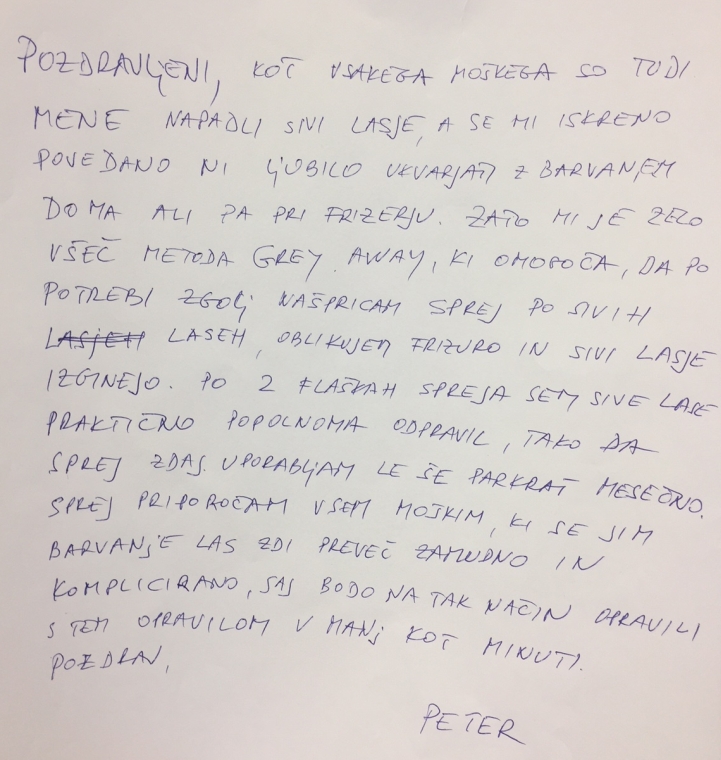 POZDRAVLJENI, KOT VSAKEGA MOŠKEGA SO TUDI
MENE NAPADLI SIVI LASJE, A SE MI ISKRENO
POVEDANO NI LJUBILO UKVARJATI Z BARVANJEM
DOMA ALI PA PRI FRIZERJU. ZATO MI JE ZELO
VŠEČ METODA GREY AWAY, KI OMOGOČA, DA PO
POTREBI ZGOLJ NAŠPRICAM SPREJ PO SIVIH
LASJEH LASEH, OBLIKUJEM FRIZURO IN SIVI LASJE
IZGINEJO. PO 2 FLAŠKAH SPREJA SEM SIVE LASE
PRAKTIČNO POPOLNOMA ODPRAVIL, TAKO DA
SPREJ ZDAJ UPORABLJAM LE ŠE PARKRAT MESEČNO.
SPREJ PRIPOROČAM VSEM MOŠKIM, KI SE JIM
BARVANJE LAS ZDI PREVEČ ZAMUDNO IN
KOMPLICIRANO, SAJ BODO NA TAK NAČIN OPRAVILI
S TEM OPRAVILOM V MANJ KOT MINUTI.
POZDRAV,
PETER